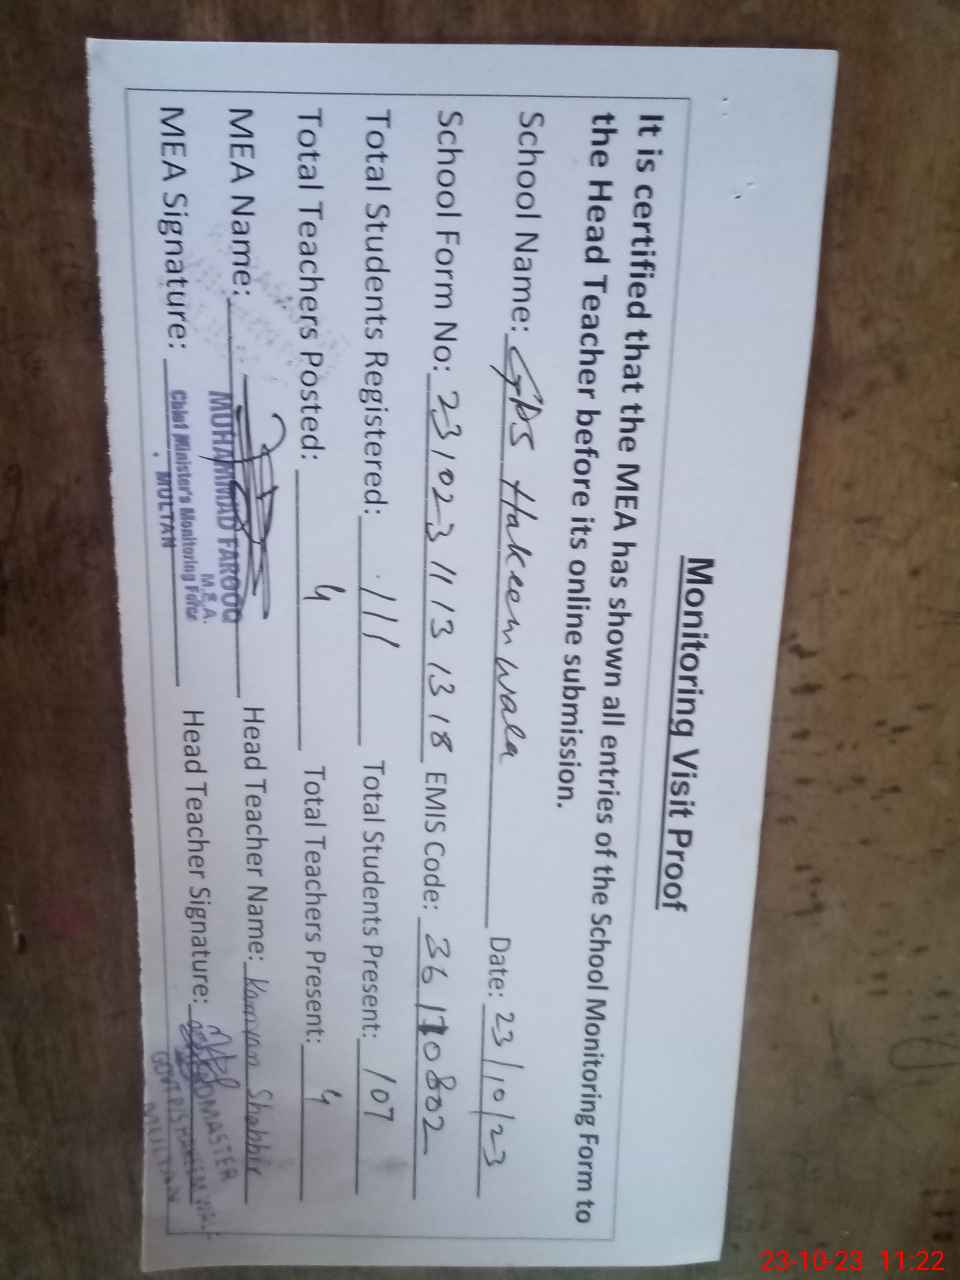 Monitoring Visit Proof
It is certified that the MEA has shown all entries of the School Monitoring Form to
the Head Teacher before its online submission.
School Name: GPS Hakeem wala Date: 23/10/23
School Form No: 23 1023 11 13 13 18 EMIS Code: 36110802
Total Students Registered: 111 Total Students Present: 107
Total Teachers Posted: 4 Total Teachers Present: 4
MEA Name: Head Teacher Name: Kamran Shabbir
MUHAMMAD FAROOQ
M.E.A.
MEA Signature: Head Teacher Signature:
Chief Minister's Monitoring Force
MULTAN
HEADMASTER
MULTAN
23-10-23 11:22